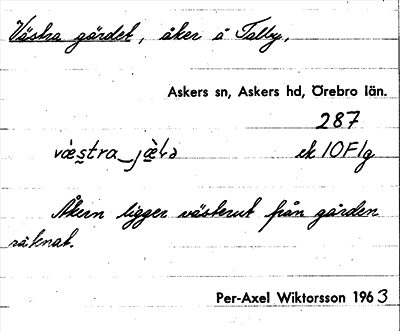 Västra gärdet, åker å Talby,
Askers sn, Askers hd, Örebro län.
287
væstra jæ̀lə ek 10F1g
Åkern ligger västerut från gården
räknat.
Per-Axel Wiktorsson 1963